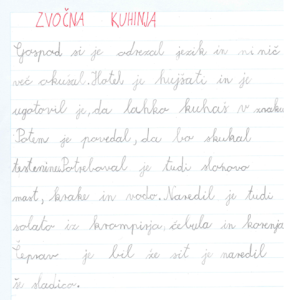 ZVOČNA KUHINJA
Gospod si je odrezal jezik in ni nič
več okušal. Hotel je hujšati in je
ugotovil je, da lahko kuhaš v zvoku
Potem je povedal, da bo skuhal
testenine. Potreboval je tudi slonovo
mast, krake in vodo. Naredil je tudi
solato iz krompirja, čebula in korenja
Čeprav je bil že sit je naredil
še sladico.